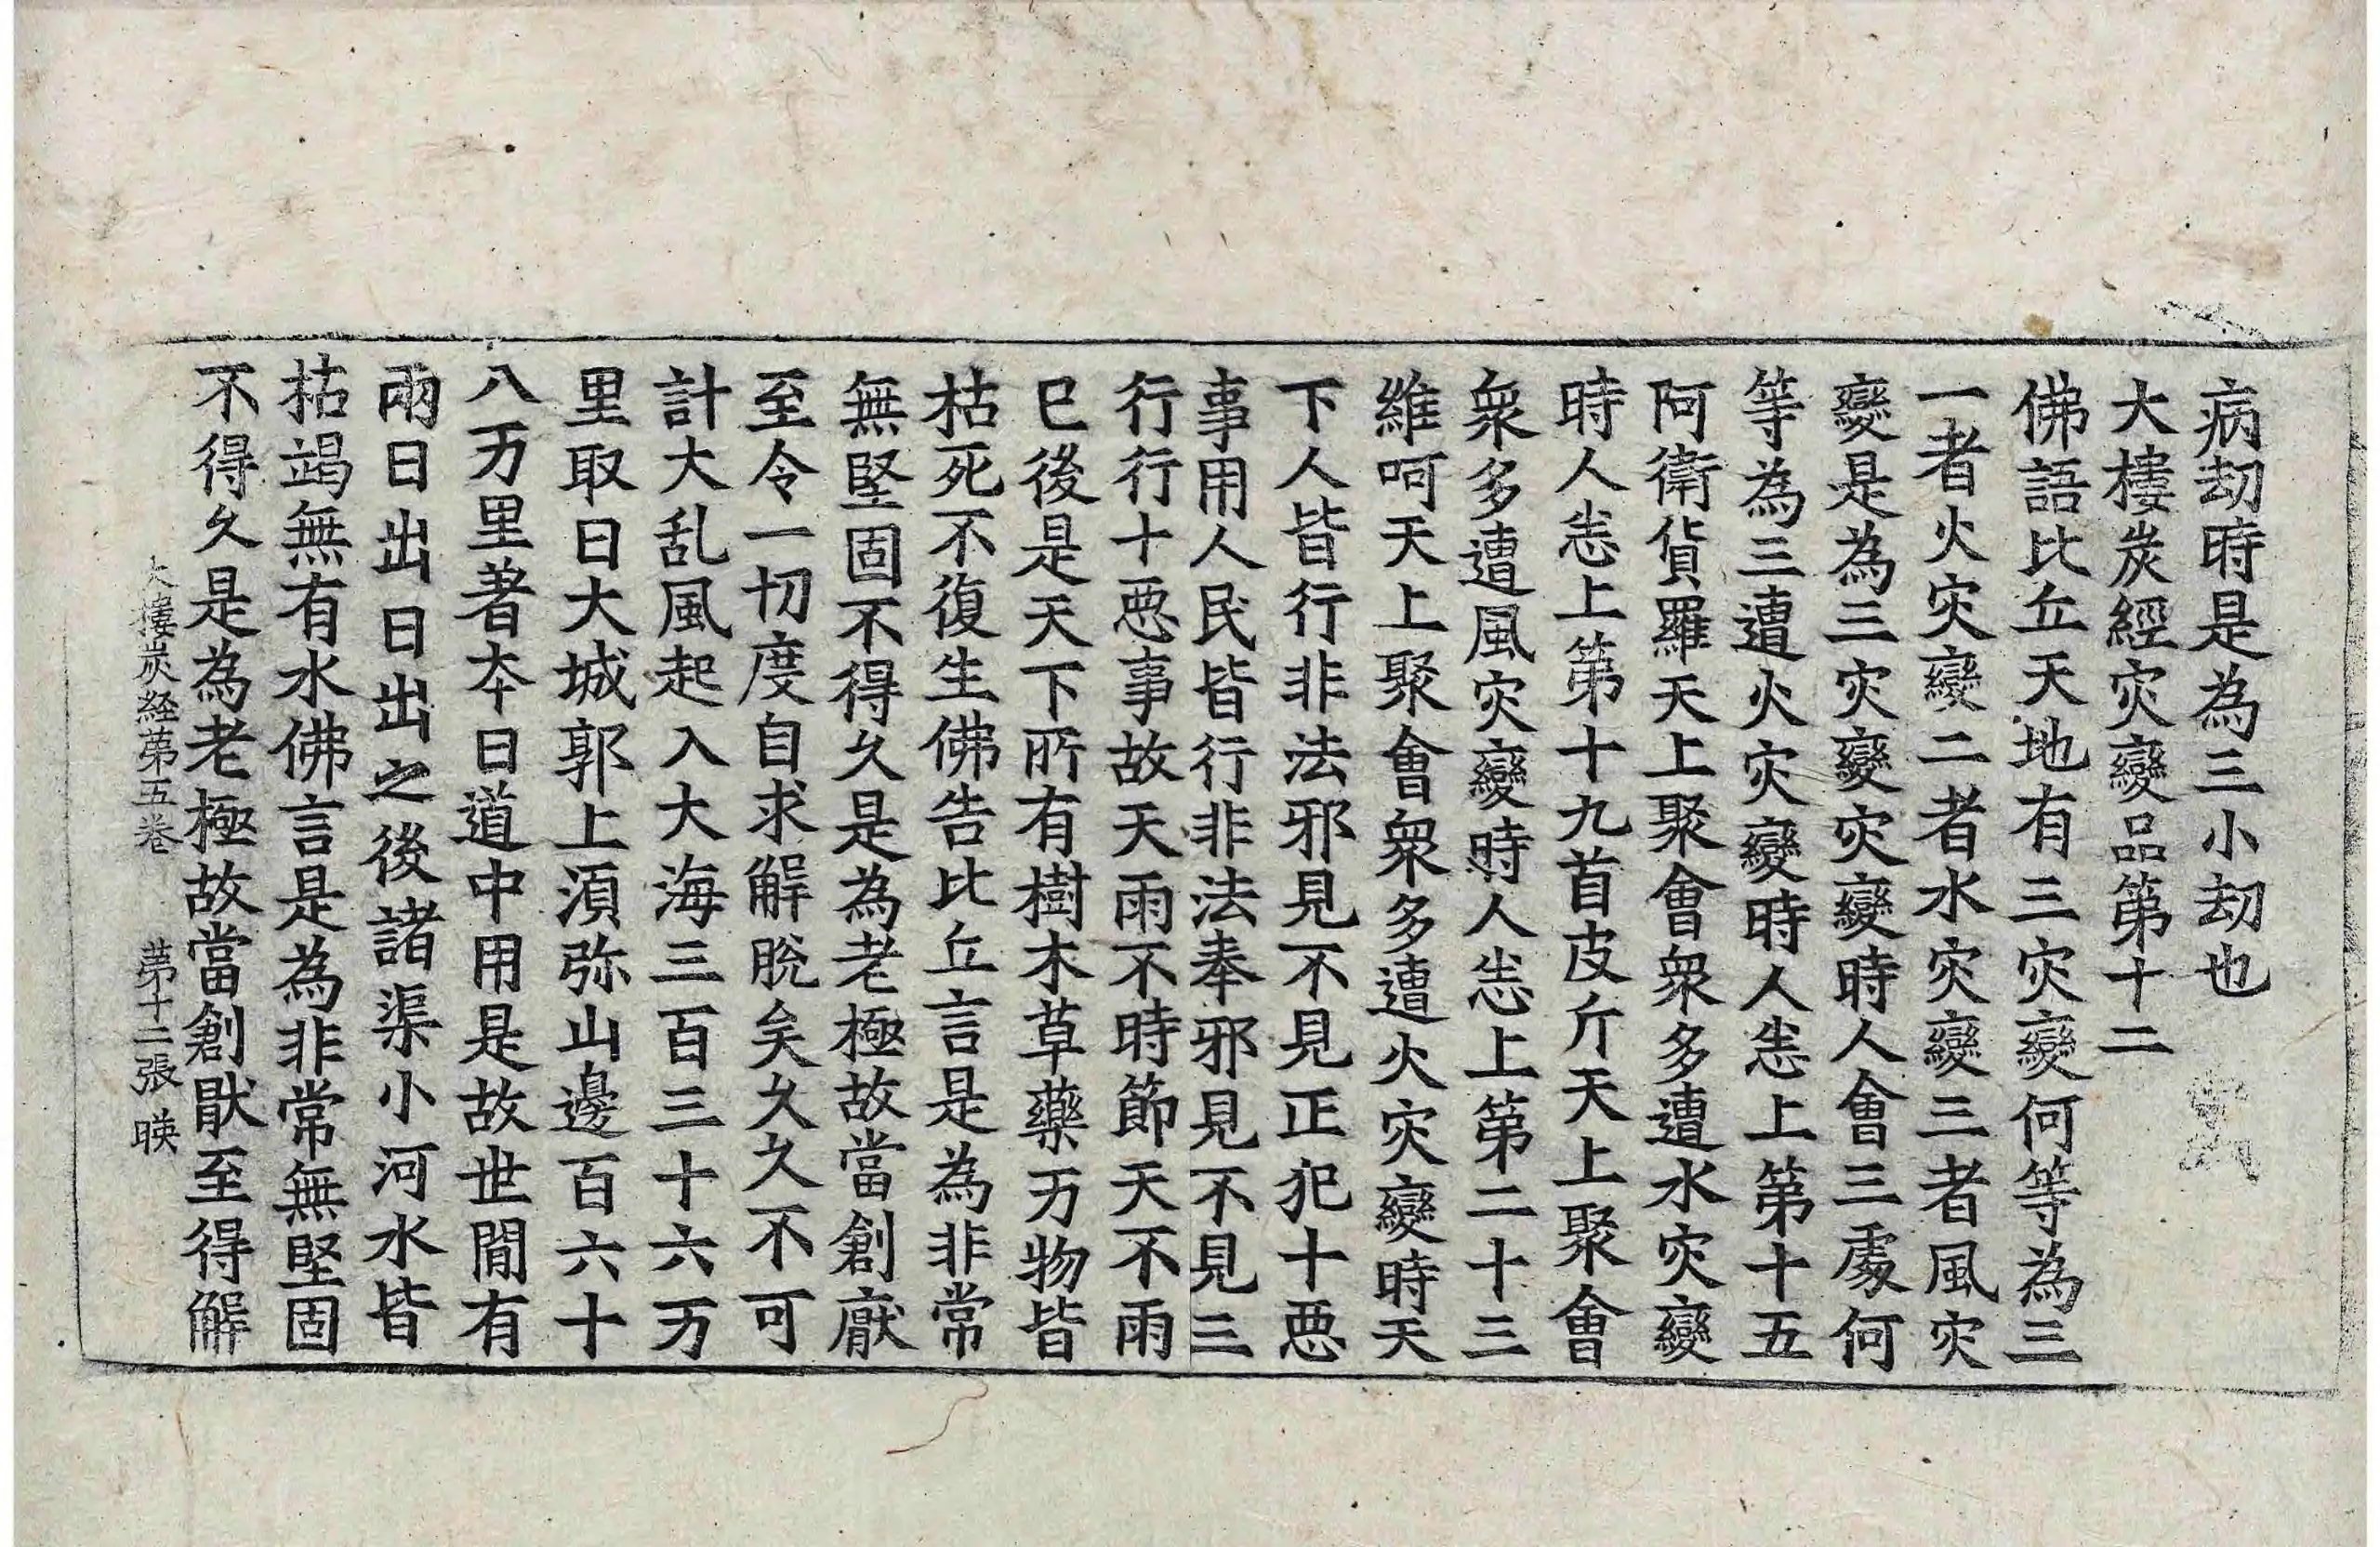 病劫時是為三小劫也
大樓炭經灾變品第十二
佛語比丘天地有三灾變何等為三
一者火灾變二者水灾變三者風灾
變是為三灾變灾變時人會三處何
等為三遭火灾變時人恙上第十五
阿衛貨羅天上聚會衆多遭水灾變
時人恙上第十九首皮斤天上聚會
衆多遭風灾變時人恙上第二十三
維呵天上聚會衆多遭火灾變時天
下人皆行非法邪見不見正犯十惡
事用人民皆行非法奉邪見不見三
行行十惡事故天雨不時節天不雨
已後是天下所有樹木草藥万物皆
枯死不復生佛告比丘言是為非常
無堅固不得久是為老極故當創厭
至令一切度自求解脫矣久久不可
計大乱風起入大海三百三十六万
里取日大城郭上湏弥山邊百六十
八万里著夲日道中用是故世閒有
兩日出日出之後諸渠小河水皆
枯竭無有水佛言是為非常無堅固
不得久是為老極故當創猒至得解
大樓炭経第五卷 第十二張 暎